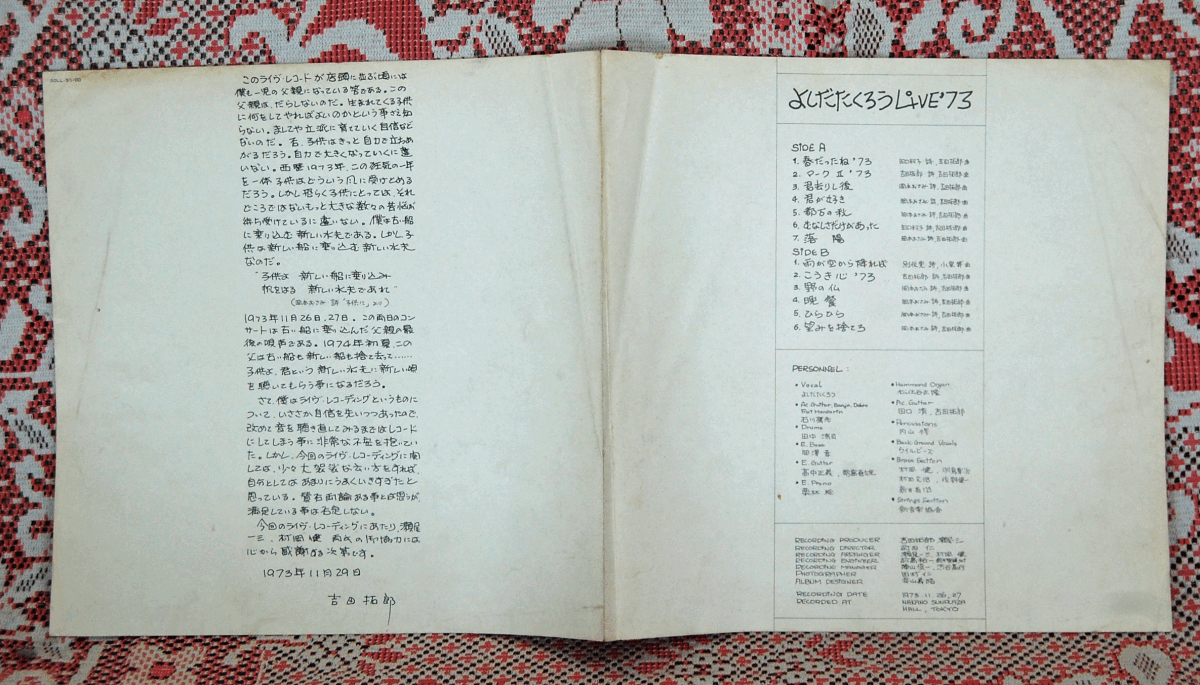 SOLL-89・90
このライヴ・レコードが店頭に出る頃には
僕も一児の父親になっている筈である。この
父親は、だらしないのだ。生まれてくる子供
に何をしてやればよいのかという事さえ知
らない。ましてや立派に育てていく自信など
ないのだ。右、子供はきっと自力で立ちあ
がるだろう。自力で大きくなっていくに違
いない。西暦1973年、この狂気の一年
を一体子供はどういう風に受けとめる
だろう。しかし恐らく子供にとっては、それ
どころではないもっと大きな数々の苦悩が
待ち受けているに違いない。僕は古い船
に乗り込む新しい水夫である。しかし子
供は新しい船に乗り込む新しい水夫
なのだ。
"子供よ 新しい船に乗り込み
帆をはる 新しい水夫であれ"
(岡本おさみ 詩「子供に」より)
1973年11月26日、27日。この両日のコン
サートは古い船に乗り込んだ父親の最
後の唄声である。1974年初夏、この
父は古い船も新しい船も捨て去って……
子供よ、君という新しい水夫に新しい唄
を聴いてもらう事になるだろう。
さて、僕はライヴ・レコーディングというものに
ついて、いささか自信を失いつつあったので、
改めて音を聴き直してみるまではレコード
にしてしまう事に非常な不安を抱いてい
た。しかし、今回のライヴ・レコーディングに関
しては、少々大袈裟な云い方をすれば、
自分としてはあまりにうまくいきすぎたと
思っている。賛否両論ある事とは思うが
満足している事は否定しない。
今回のライヴ・レコーディングにあたり、瀬尾
一三、村岡 健 両氏の御協力には
心から感謝する次第です。
1973年11月29日
吉田拓郎
よしだたくろう LiVE'73
SIDE A
1. 春だったね'73 田口淑子 詩、吉田拓郎 曲
2. マークⅡ'73 吉田拓郎 詩、吉田拓郎 曲
3. 君去りし後 岡本おさみ 詩、吉田拓郎 曲
4. 君が好き 岡本おさみ 詩、吉田拓郎 曲
5. 都万の秋 岡本おさみ 詩、吉田拓郎 曲
6. むなしさだけがあった 田口淑子 詩、吉田拓郎 曲
7. 落陽 岡本おさみ 詩、吉田拓郎 曲
SIDE B
1. 雨が空から降れば 別役実 詩、小室等 曲
2. こうき心'73 吉田拓郎 詩、吉田拓郎 曲
3. 野の仏 岡本おさみ 詩、吉田拓郎 曲
4. 晩餐 岡本おさみ 詩、吉田拓郎 曲
5. ひらひら 岡本おさみ 詩、吉田拓郎 曲
6. 望みを捨てろ 岡本おさみ 詩、吉田拓郎 曲
PERSONNEL:
• Vocal
よしだたくろう
• Ac. Guitar, Banjo, Dobro
Flat Mandolin
石川鷹彦
• Drums
田中清司
• E. Bass
岡澤章
• E. Guitar
高中正義、
• E. Piano
栗林稔
• Hammond Organ
松任谷正隆
• Ac. Guitar
田口清、吉田拓郎
• Percussions
内山修
• Back Ground Vocals
ウイルビーズ
• Brass Section
村岡健、羽鳥幸次
村田文治、佐野健一
新井英治
• Strings Section
新音楽協会
RECORDING PRODUCER 吉田拓郎 瀬尾一三
RECORDING DIRECTOR 前田 仁
RECORDING ARRANGER 瀬尾一三、村岡 健
RECORDING ENGINEER
RECORDING MANAGER
PHOTOGRAPHER 田村 仁
ALBUM DESIGNER
RECORDING DATE 1973. 11. 26, 27
RECORDED AT NAKANO SUNPLAZA
HALL, TOKYO